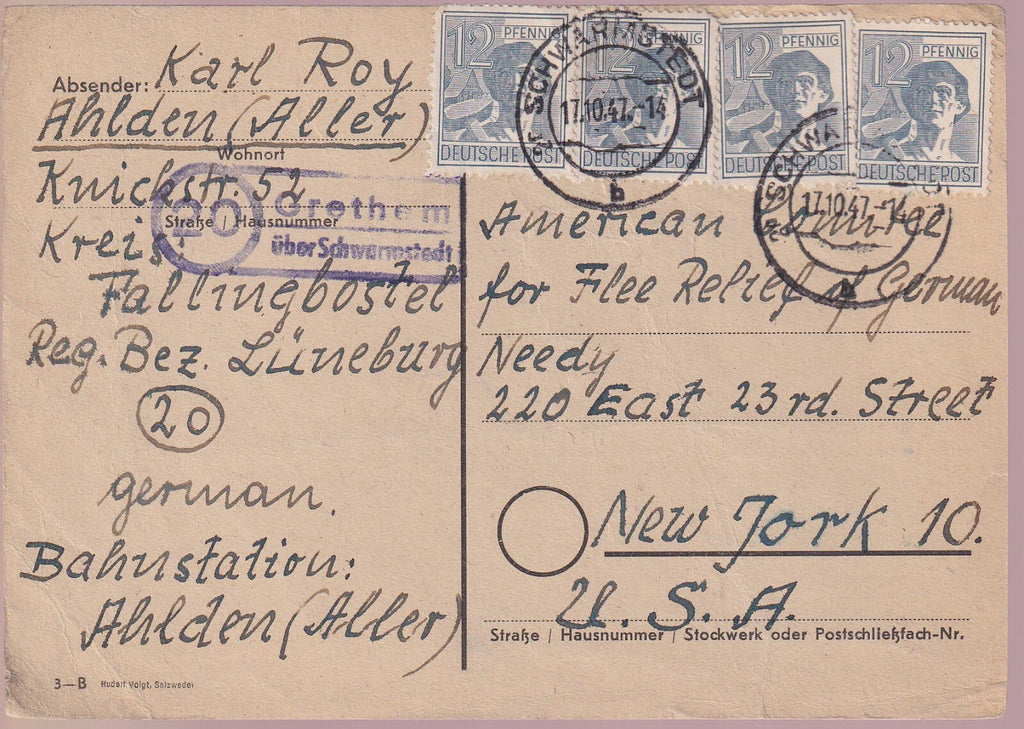 Absender: Karl Roy
Ahlden (Aller)
Wohnort
Knickstr. 52
Straße / Hausnummer
Kreis:
Fallingbostel
Reg. Bez. Lüneburg
20
german.
Bahnstation:
Ahlden (Aller)
3—B Rudolf Voigt, Salzwedel
20 Grethem
über Schwarmstedt
12 PFENNIG
DEUTSCHE POST
12
DEUTSCHE POST
12 PFENNIG
DEUTSCHE POST
12 PFENNIG
DEUTSCHE POST
SCHWARMSTEDT
17.10.47.-14
b
SCHWA
17.10.47.-14
b
American
for Flee Relief of German
Needy
220 East 23rd. Street
New Jork 10.
U. S. A.
Straße / Hausnummer / Stockwerk oder Postschließfach-Nr.